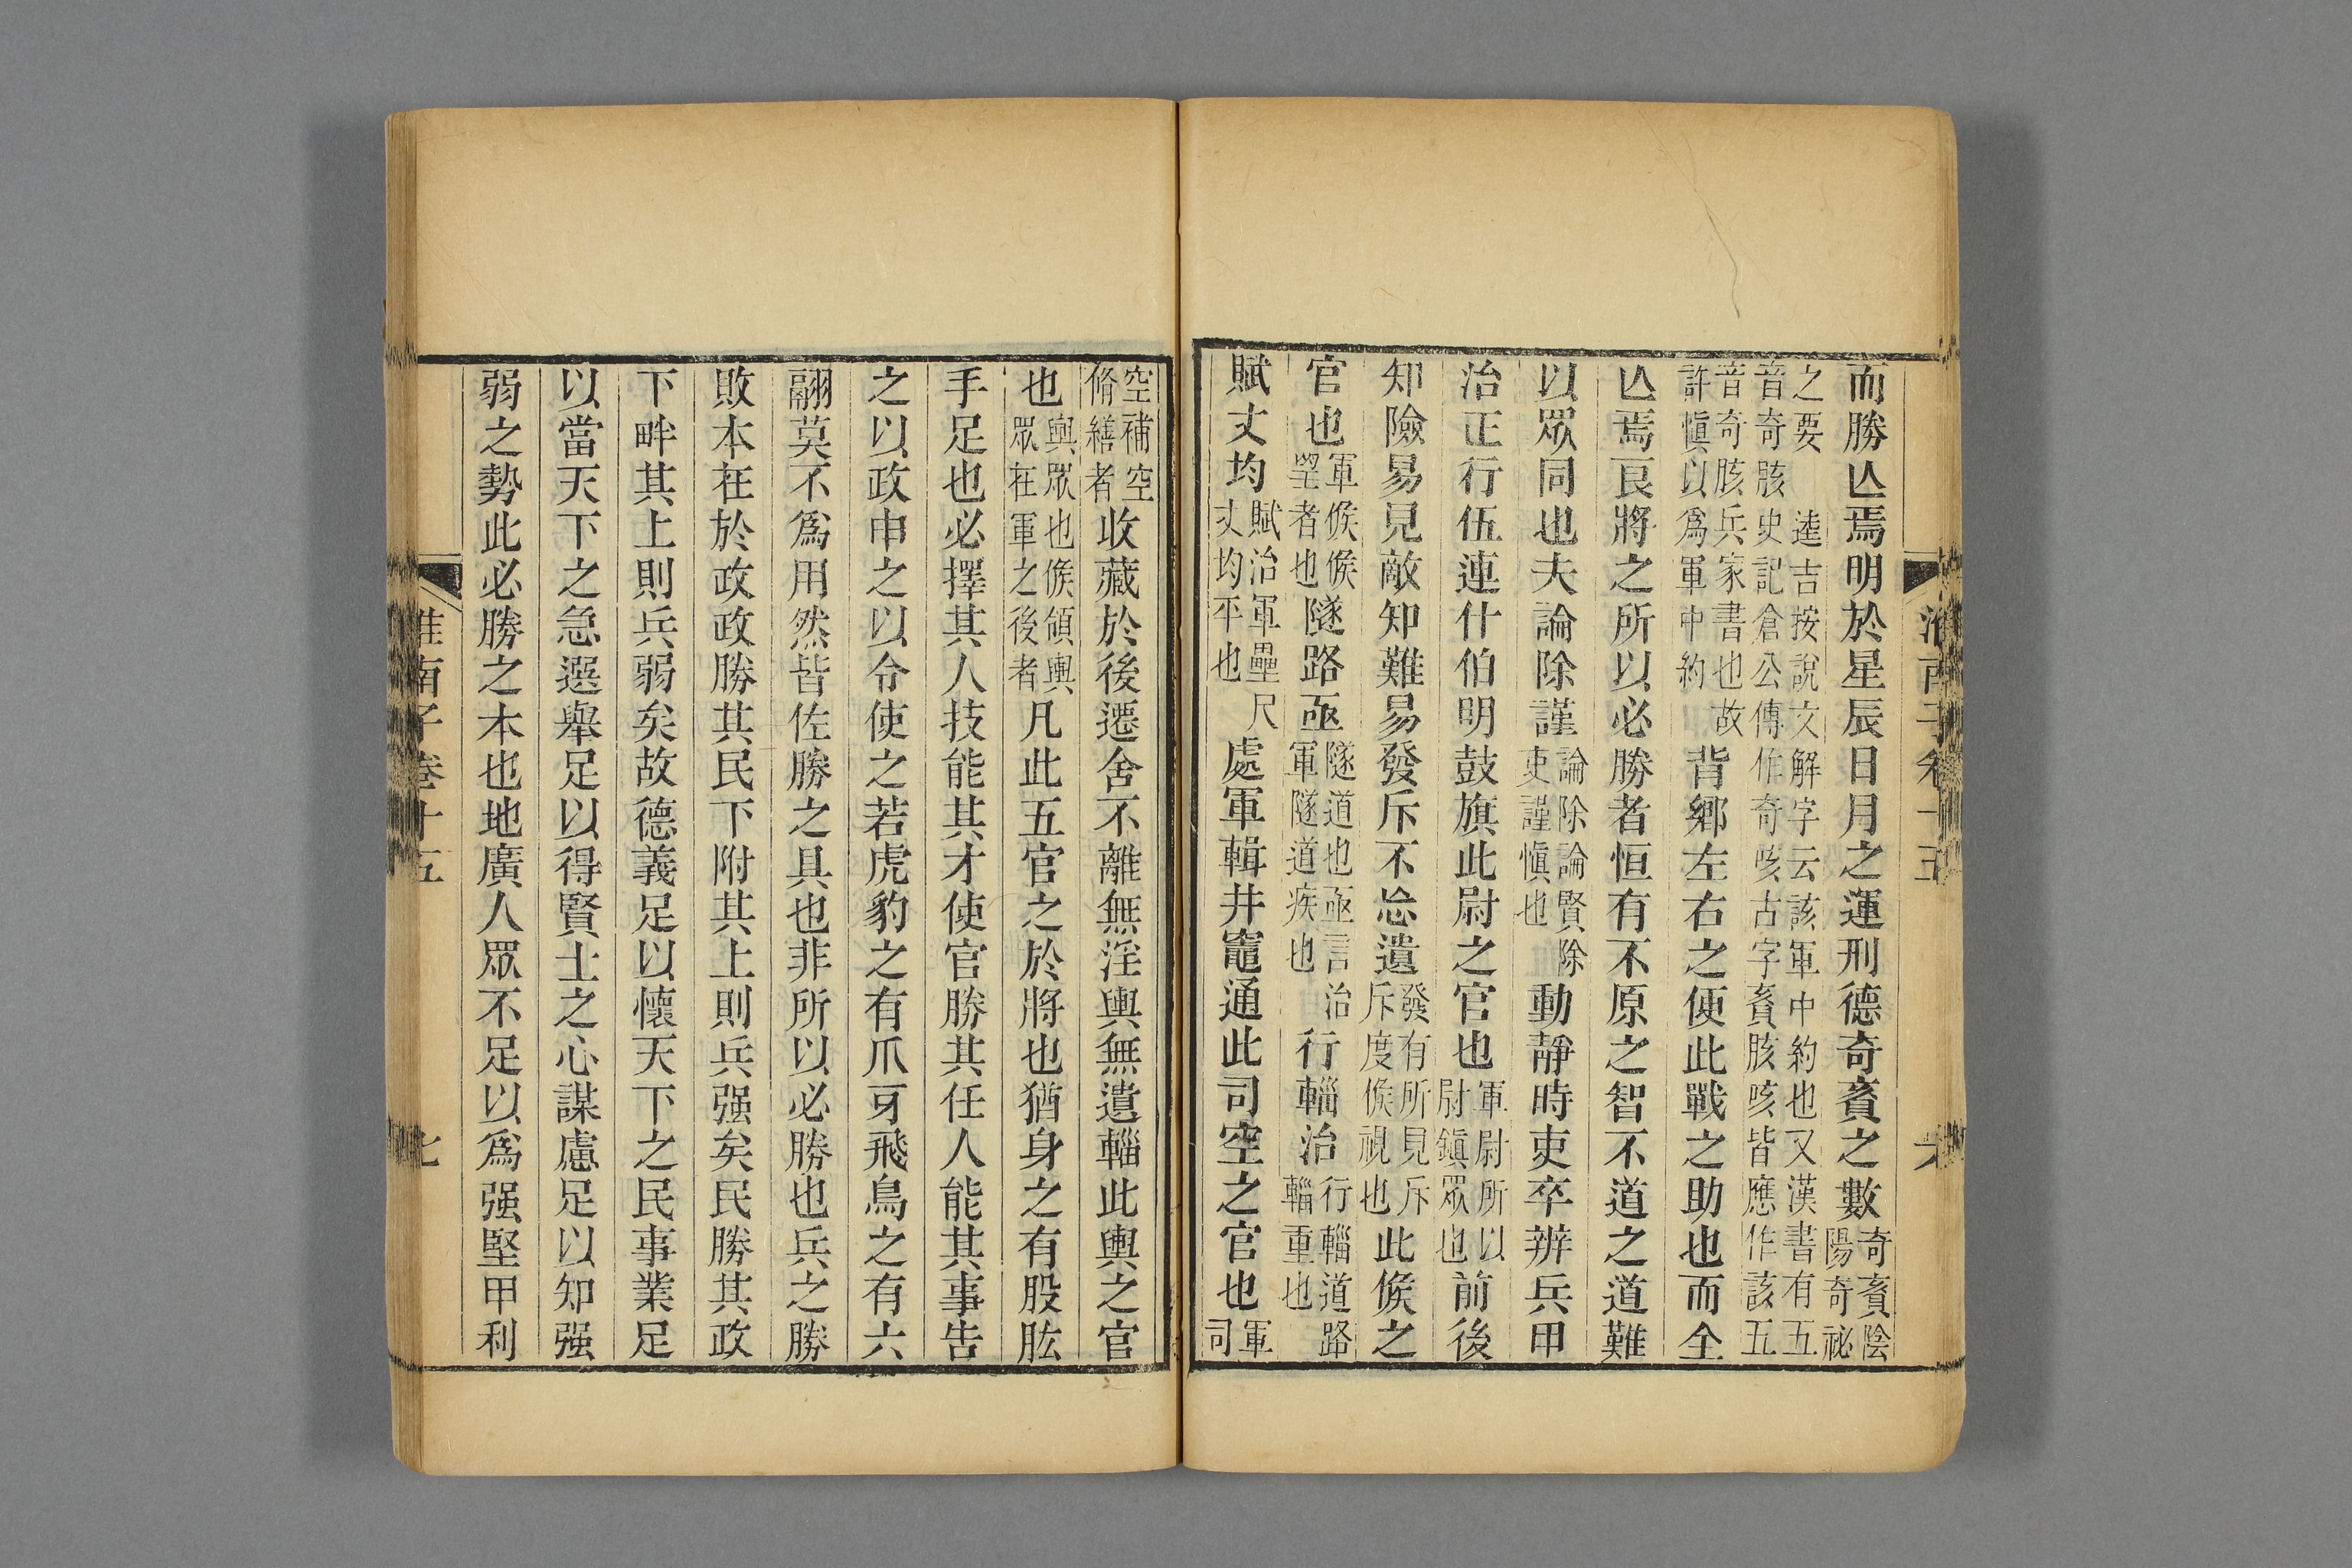 淮南子卷十五 六
而勝亾焉明於星辰日月之運刑德奇賌之數奇賌陰陽奇祕
之要 逵吉按說文解字云該軍中約也又漢書有五
音奇胲史記倉公傳作奇咳古字賌胲咳皆應作該五
音奇胲兵家書也故許愼以爲軍中約背鄉左右之便此戰之助也而全
亾焉良將之所以必勝者恒有不原之智不道之道難
以眾同也夫論除謹論除論賢除吏謹愼也動靜時吏卒辨兵甲
治正行伍連什伯明鼓旗此尉之官也軍尉所以尉鎭眾也前後
知險易見敵知難易發斥不忘遺發有所見斥斥度候視也此候之
官也軍候候望者也隧路亟隧道也亟言治軍隧道疾也行輜治行輜道路輜重也
賦丈均賦治軍壘尺丈均平也處軍輯井竈通此司空之官也軍司
空補空脩繕者收藏於後遷舍不離無淫輿無遺輜此輿之官
也輿眾也候領輿眾在軍之後者凡此五官之於將也猶身之有股肱
手足也必擇其人技能其才使官勝其任人能其事告
之以政申之以令使之若虎豹之有爪牙飛鳥之有六
翮莫不爲用然皆佐勝之具也非所以必勝也兵之勝
敗本在於政政勝其民下附其上則兵强矣民勝其政
下畔其上則兵弱矣故德義足以懷天下之民事業足
以當天下之急選舉足以得賢士之心謀慮足以知强
弱之勢此必勝之本也地廣人眾不足以爲强堅甲利
淮南子卷十五 七